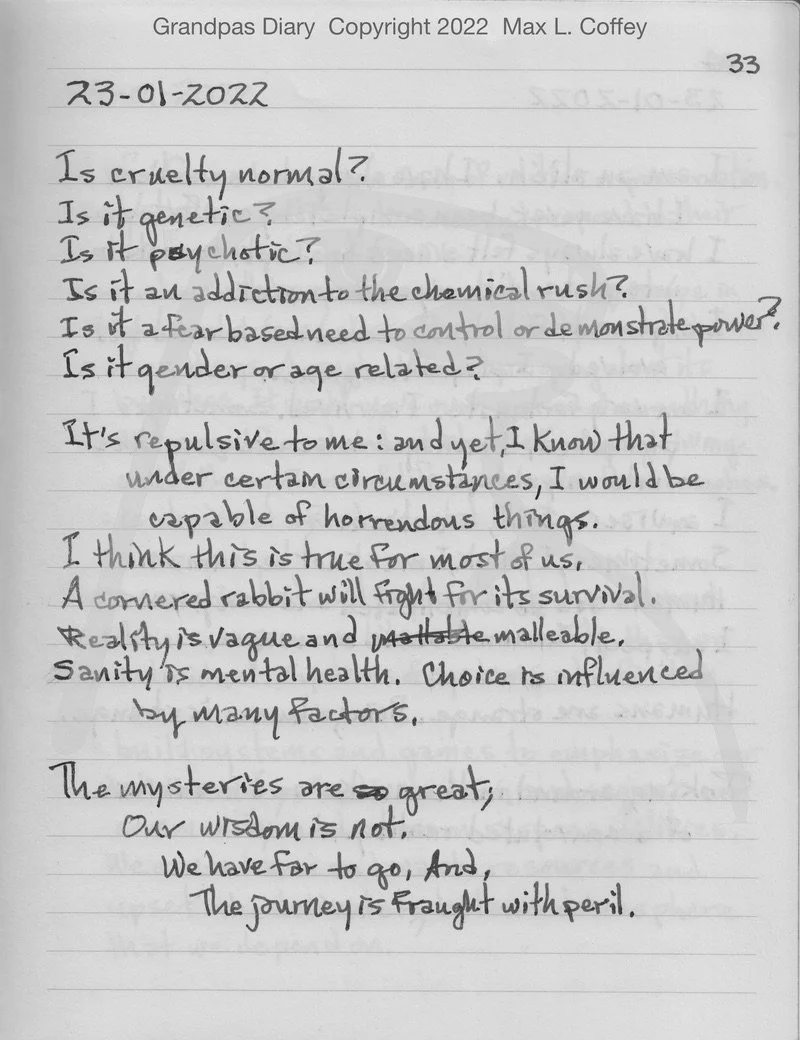 Grandpas Diary Copyright 2022 Max L. Coffey
33
23-01-2022
Is cruelty normal?
Is it genetic?
Is it psychotic?
Is it an addiction to the chemical rush?
Is it a fear based need to control or demonstrate power?
Is it gender or age related?
It's repulsive to me: and yet, I know that
under certain circumstances, I would be
capable of horrendous things.
I think this is true for most of us.
A cornered rabbit will fight for its survival.
Reality is vague and malleable.
Sanity is mental health. Choice is influenced
by many factors.
The mysteries are so great;
Our wisdom is not.
We have far to go, And,
The journey is fraught with peril.